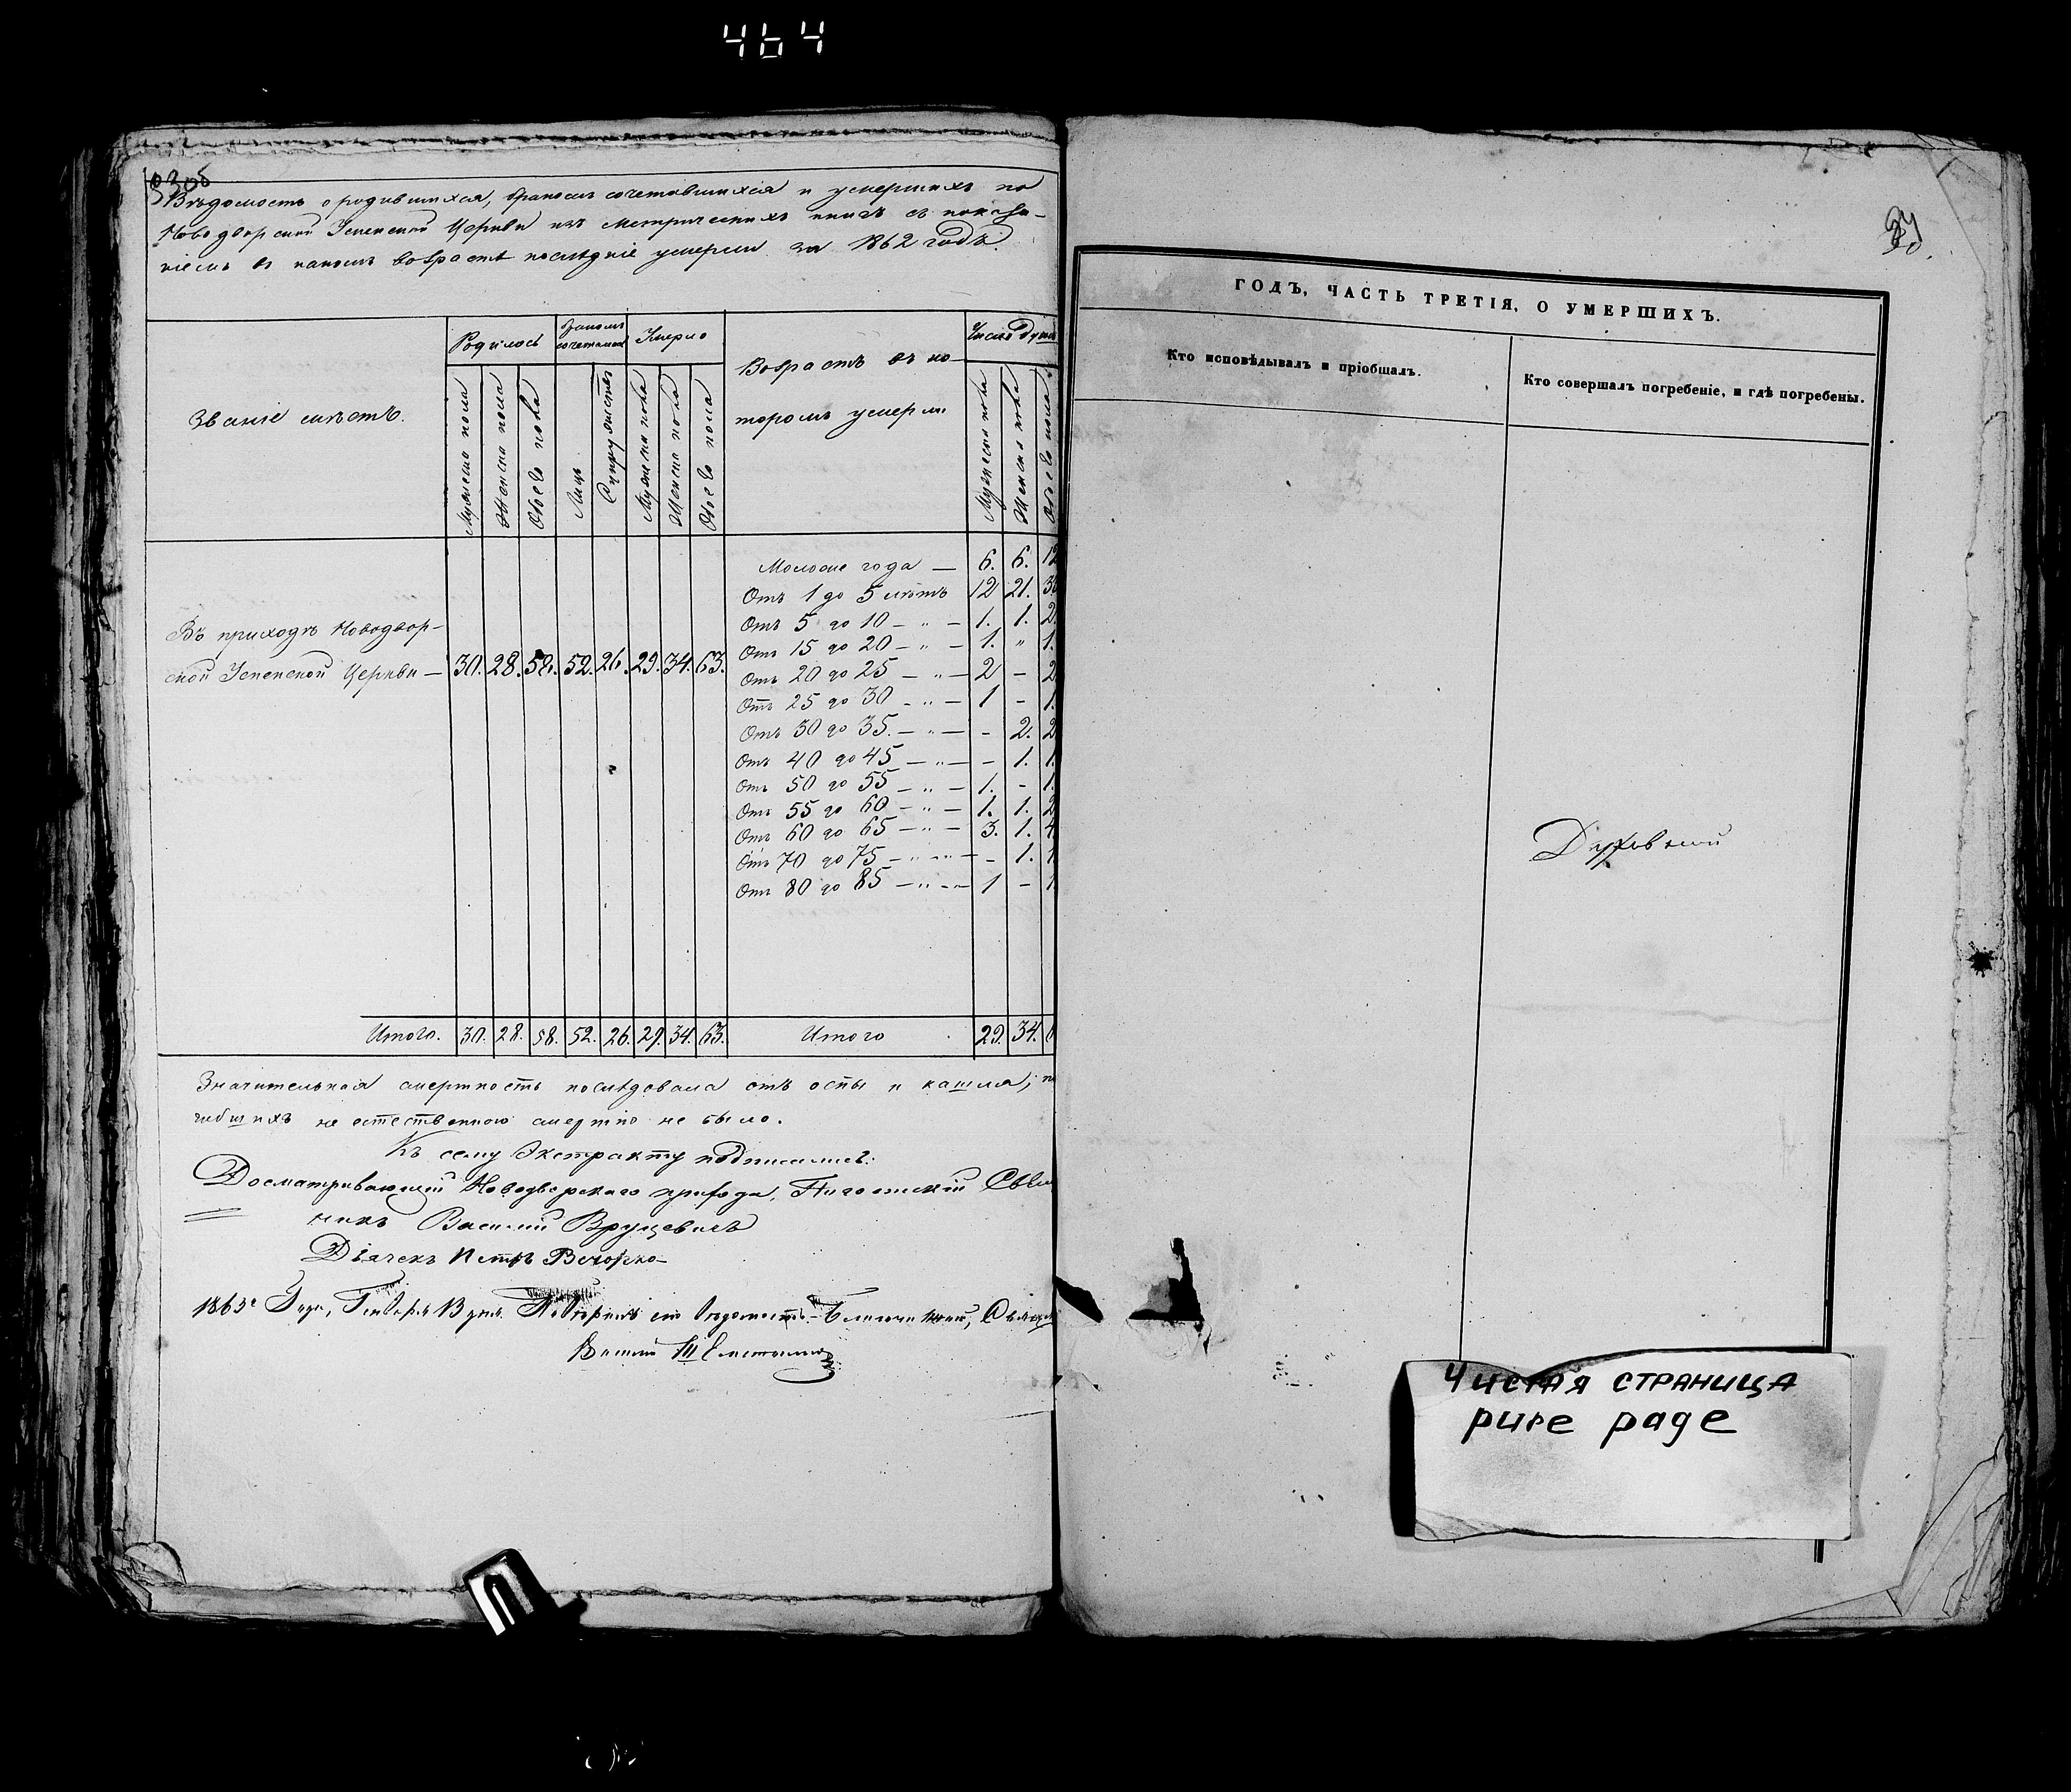 464
Вѣдомость о родившихся, бракомъ сочетавшихся и умершихъ по
Новодворской Успенской Церкви изъ метрическихъ книгъ съ показа-
ніемъ въ какомъ возрастѣ послѣдніе умерли за 1862 годъ.
Званіе мѣстъ.
Родилось
Бракомъ сочеталось
Умерло
Возрастъ въ ко-
торомъ умерли
Число душъ
Мужеска пола
Женска пола
Обоего пола
Лицъ
Супружествъ
Мужеска пола
Женска пола
Обоего пола
Мужеска пола
Женска пола
Обоего пола
Въ приходѣ Новодвор-
ской Успенской Церкви — 30. 28. 58. 52. 26. 29. 34. 63.
Моложе года — 6. 6. 12
Отъ 1 до 5 лѣтъ 12 21. 3
Отъ 5 до 10 — „ — 1. 1. 2.
Отъ 15 до 20 — „ — 1. „ 1.
Отъ 20 до 25 — „ — 2 - 2
Отъ 25 до 30 - „ — 1 - 1.
Отъ 30 до 35. — „ — - 2. 2
Отъ 40 до 45 — „ — - 1. 1.
Отъ 50 до 55 — „ — 1. - 1.
Отъ 55 до 60 — „ — 1. 1. 2
Отъ 60 до 65 — „ — 3. 1. 4
Отъ 70 до 75 — „ — - 1. 1
Отъ 80 до 85 — „ — 1 - 1
Итого. 30. 28. 58. 52. 26. 29. 34. 63.
Итого 29. 34. 6
Значительная смертность послѣдовала отъ оспы и кашля; по
гибшихъ не естественною смертію не было.
Къ сему Экстракту подписались:
Досматривающій Новодворскаго прихода, Свящ
никъ Василій Врублевскій
Дьячекъ Петръ
1863 Года, Генваря Вѣдомость Благочинный, Священ
Василій
ГОДЪ, ЧАСТЬ ТРЕТІЯ, О УМЕРШИХЪ.
Кто исповѣдывалъ и пріобщалъ.
Кто совершалъ погребеніе, и гдѣ погребены.
Чистая страница
pure page